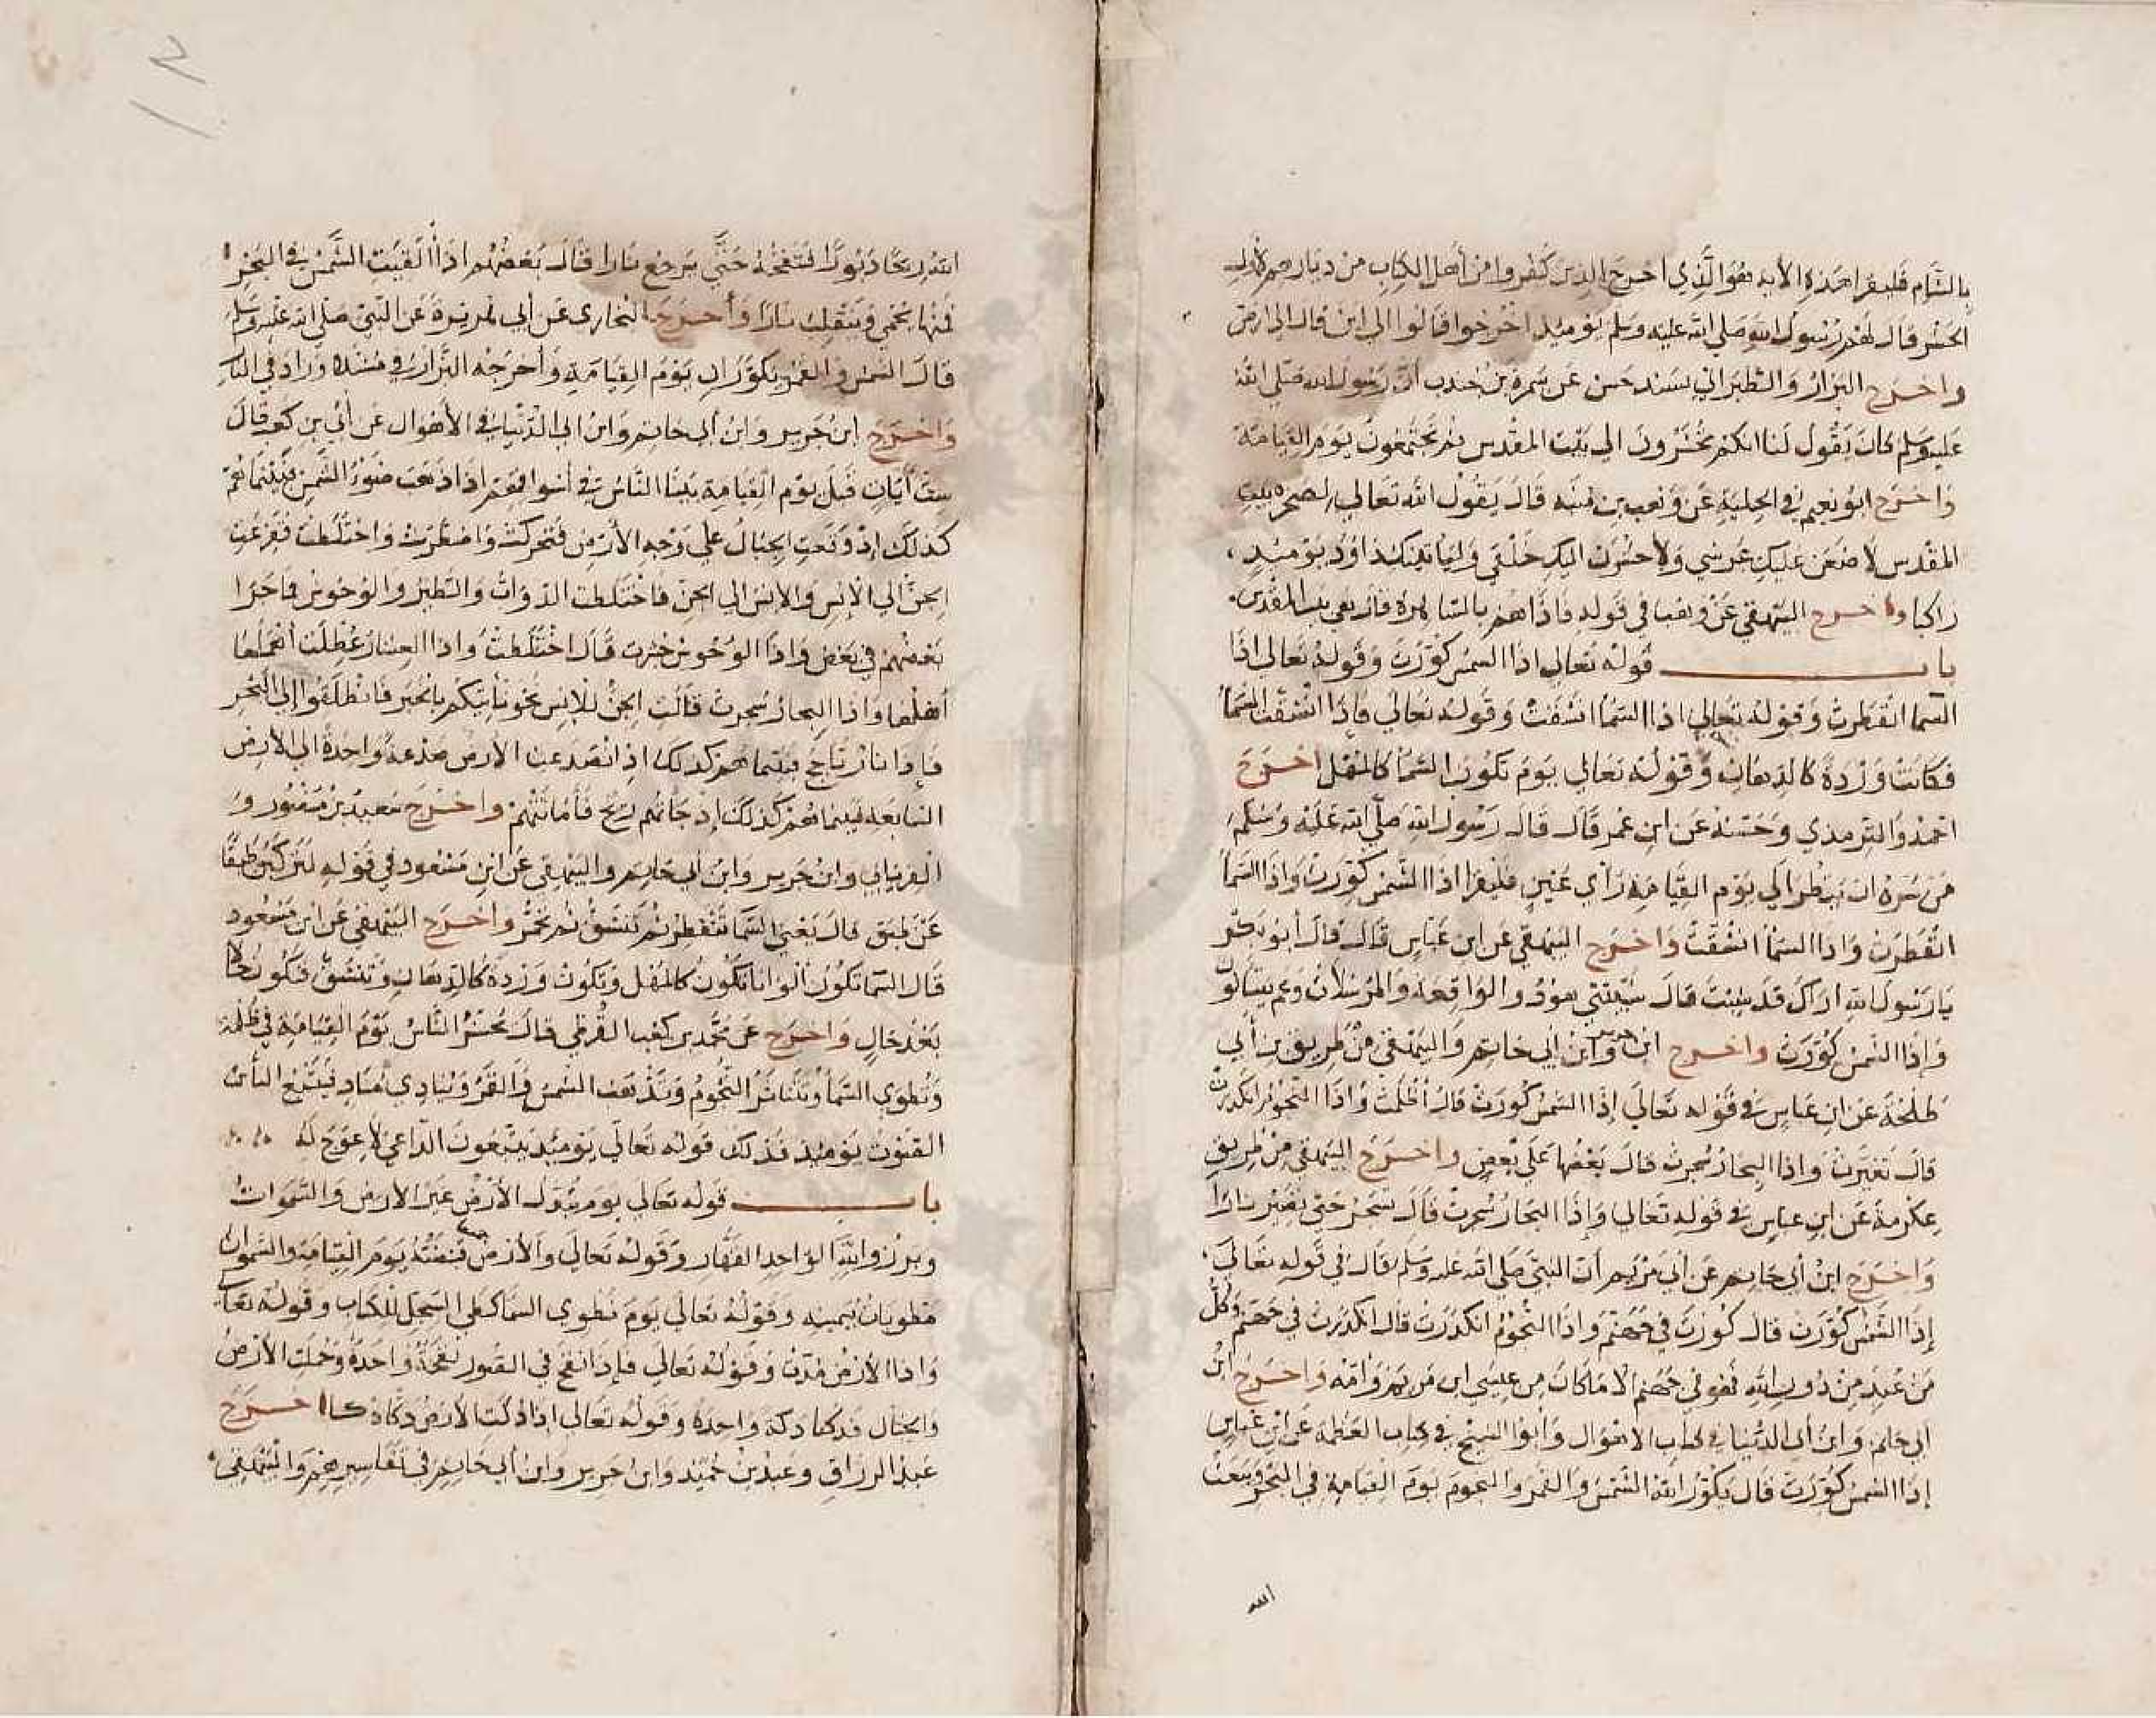 بالشام فليقرا هذه الاية هو الذي اخرج الذين كفروا من أهل الكتاب من ديارهم لاول
الحشر قال لهم رسول الله صلي الله عليه وسلم يوميذ اخرجوا قالوا الي اين قال الي ارض
واخرج البزار والطبراني بسند حسن عن سمرة بن جندب أن رسول الله صلي الله
عليه وسلم كان يقول لنا انكم تحشرون الي بيت المقدس ثم تجتمعون يوم القيامة
واخرج ابو نعيم في الحلية عن وهب بن منبه قال يقول الله تعالي لصخرة بيت
المقدس لاضعن عليك عرشي ولاحشرن اليك خلقي ولياتينك داود يوميذ
راكبا واخرج البيهقي عن وهب في قوله فاذا هم بالساهرة قال يعني بيت المقدس
باب قوله تعالي اذا الشمس كورت وقوله تعالي اذا
السما انفطرت وقوله تعالي اذا السما انشقت وقوله تعالي فإذا انشقت السما
فكانت وردة كالدهان وقوله تعالي يوم تكون السما كالمهل اخرج
احمد والترمذي وحسنه عن ابن عمر قال قال رسول الله صلي الله عليه وسلم
من سره ان ينظر الي يوم القيامة رأي عين فليقرا اذا الشمس كورت واذا السما
انفطرت واذا السما انشقت واخرج البيهقي عن ابن عباس قال قال أبو بكر
يا رسول الله اراك قد شبت قال شيبتني هود والواقعة والمرسلات وعم يتسالون
وإذا الشمس كورت واخرج ابن جرير وابن أبي حاتم والبيهقي من طريق بن أبي
طلحة عن ابن عباس في قوله تعالي إذا الشمس كورت قال أظلمت واذا النجوم انكدرت
قال تغيرت واذا البحار سجرت قال بعضها علي بعض واخرج البيهقي من طريق
عكرمة عن ابن عباس في قوله تعالي وإذا البحار سجرت قال تسجر حتي تصير نارا
واخرج ابن أبي حاتم عن أبي مريم أن النبي صلي الله عليه وسلم قال في قوله تعالي
إذا الشمس كورت قال كورت في جهنم واذا النجوم انكدرت قال انكدرت في جهنم وكل
من عبد من دون الله فهو في جهنم الا ما كان من عيسي ابن مريم وامه واخرج ابن
ابي حاتم وابن أبي الدنيا في كتاب الاهوال وأبو الشيخ في كتاب العظمة عن ابن عباس
إذا الشمس كورت قال يكور الله الشمس والقمر والنجوم يوم القيامة في البحر ويبعث
الله
الله ريحا دبورا فتنفخه حتي يرجع نارا قال بعضهم اذا ألقيت الشمس في البحر
فمنها يحمي وينقلب نارا وأخرج البخاري عن أبي هريرة عن النبي صلي الله عليه وسلم
قال الشمس والقمر يكوران يوم القيامة وأخرجه البزار في مسنده وزاد في النار
واخرج ابن جرير وابن أبي حاتم وابن ابي الدنيا في الأهوال عن أبي بن كعب قال
ست أيات قبل يوم القيامة بينا الناس في أسواقهم اذ ذهب ضوء الشمس فبينما هم
كذلك إذ وقعت الجبال علي وجه الأرض فتحركت واضطربت واختلطت ففزعت
الجن الي الإنس والإنس الي الجن فاختلطت الدواب والطير والوحوش فماجوا
بعضهم في بعض واذا الوحوش حشرت قال اختلطت واذا العشار عطلت أهملها
أهلها واذا البحار سجرت قالت الجن للإنس نحن نأتيكم بالخبر فانطلقوا إلي البحر
فإذا نار تاجج فبينما هم كذلك اذ انصدعت الارض صدعة واحدة الي الأرض
السابعة فبينما هم كذلك إذ جاتهم ريح فأماتتهم واخرج سعيد بن منصور و
الفريابي وابن جرير وابن أبي حاتم والبيهقي عن ابن مسعود في قوله لتركبن طبقا
عن طبق قال يعني السما تنفطر ثم تنشق ثم تحمر واخرج البيهقي عن ابن مسعود
قال السما تكون ألوانا تكون كالمهل وتكون وردة كالدهان وتنشق فتكون حالا
بعد حال واخرج عن محمد بن كعب القرظي قال يحشر الناس يوم القيامة في ظلمة
وتطوي السما وتتناثر النجوم وتذهب الشمس والقمر وينادي مناد فيتبع الناس
الصوت يوميذ فذلك قوله تعالي يوميذ يتبعون الداعي لا عوج له
باب قوله تعالي يوم تبدل الأرض غير الارض والسموات
وبرزوا لله الواحد القهار وقوله تعالي والأرض جميعا قبضته يوم القيامة والسموات
مطويات بيمينه وقوله تعالي يوم نطوي السما كطي السجل للكتاب وقوله تعالي
واذا الأرض مدت وقوله تعالي فإذا نفخ في الصور نفخة واحدة وحملت الأرض
والجبال فدكتا دكة واحدة وقوله تعالي اذا دكت الأرض دكا دكا اخرج
عبد الرزاق وعبد بن حميد وابن جرير وابن أبي حاتم في تفاسيرهم والبيهقي